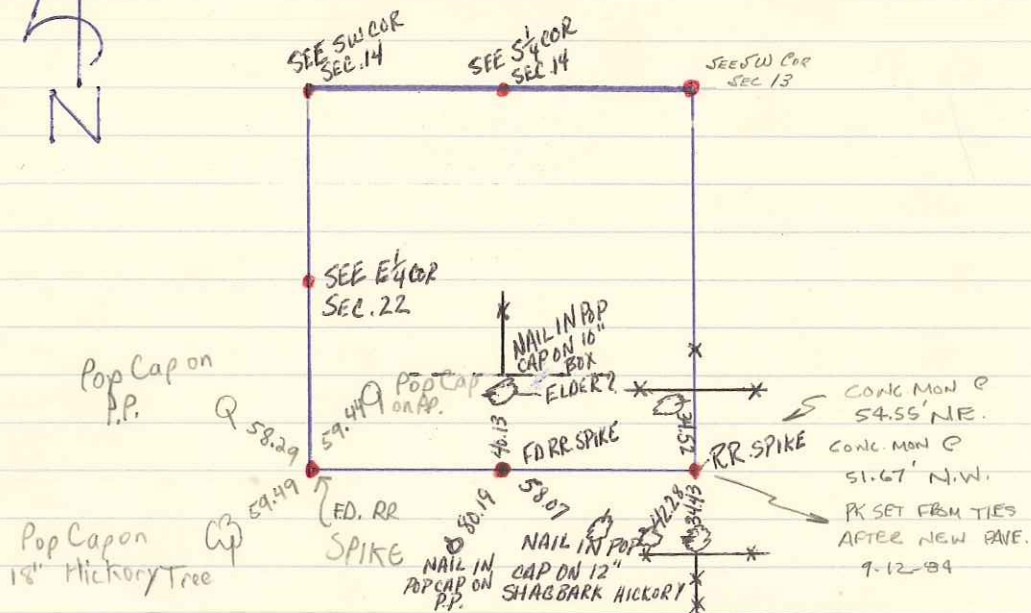 N
SEE SW COR
SEC. 14
SEE S 1/4 COR
SEC. 14
SEE SW COR
SEC 13
SEE E 1/4 COR
SEC. 22
NAIL IN POP
CAP ON 10"
BOX
ELDER?
Pop Cap on
P.P.
58.29
59.44
Pop Cap
on P.P.
46.13
FD RR SPIKE
RR. SPIKE
CONC. MON @
54.55' N.E.
CONC. MON @
51.67' N.W.
PK SET FROM TIES
AFTER NEW PAVE.
9-12-84
59.49
FD. RR
SPIKE
Pop Cap on
18" Hickory Tree
80.19
NAIL IN
POP CAP ON
P.P.
58.07
NAIL IN POP
CAP ON 12"
SHAGBARK HICKORY
42.28
34.43